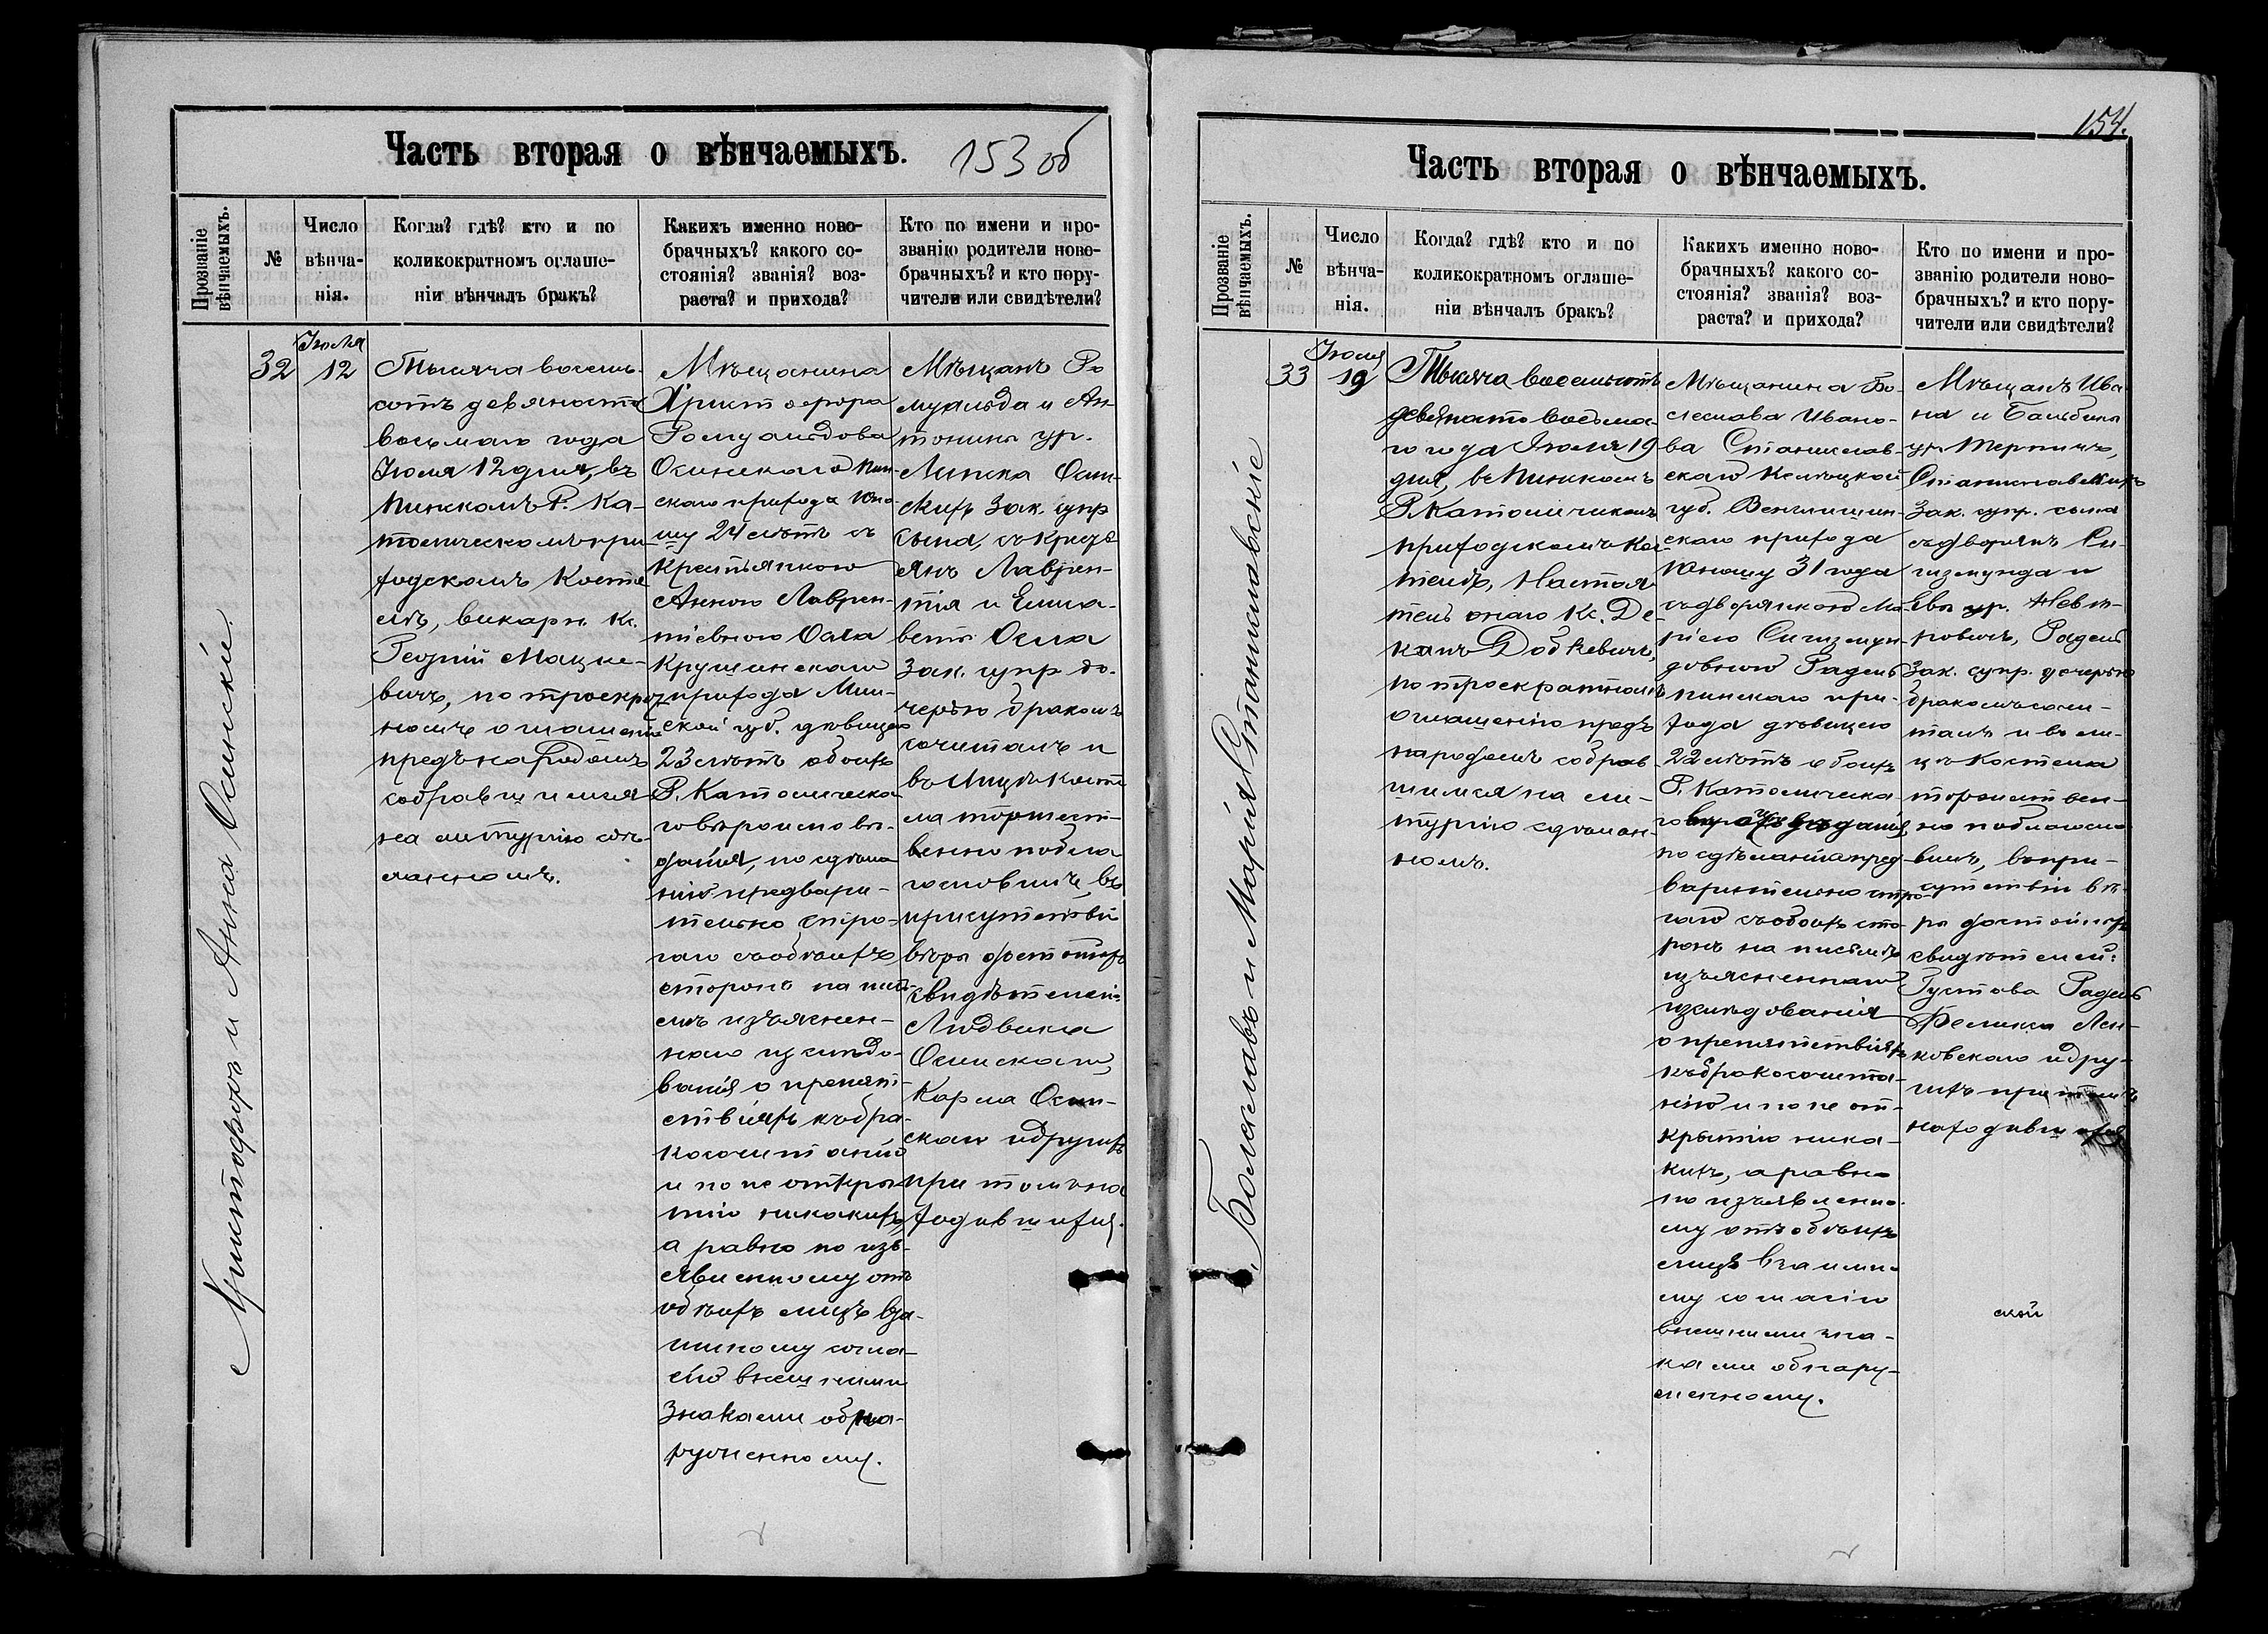 Часть вторая о вѣнчаемыхъ. 153 об
Прозваніе вѣнчаемыхъ.
№
Число вѣнча-нія.
Когда? гдѣ? кто и по
коликократномъ оглаше-
ніи вѣнчалъ бракъ?
Какихъ именно ново-
брачныхъ? какого со-
стоянія? званія? воз-
раста? и прихода?
Кто по имени и про-
званію родители ново-
брачныхъ? и кто пору-
чители или свидѣтели?
Христофоръ и Анна Осинскіе.
32
Іюля
12
Тысяча восемь-
сотъ девяносто
восьмаго года
Іюля 12 дня, въ
Пинскомъ Р. Ка-
толическомъ при
ходскомъ косте
лѣ, викарн. Кс.
Георгій Мацке-
вичъ, по троекрат
номъ оглашеніи
предъ народомъ
собравшимся
на литургію сдѣ-
ланномъ.
Мѣщанина
Христофора
Ромуальдова
Осинскаго Пин-
скаго прихода юно-
шу 24 лѣтъ съ
крестьянкою
Анною Лаврен-
тіевною
Крушинскаго
прихода Мин-
ской губ. дѣвицею
23 лѣтъ обоихъ
Р. Католическа-
го вѣроисповѣ-
данія, по сдѣла
ніи предвари-
тельно стро-
гаго съ обѣихъ
сторонъ на пись-
мѣ изъяснен-
наго изслѣдо-
ванія о препят-
ствіяхъ къ бра-
косочетанію
и по не откры-
тію никакихъ,
а равно по изъ-
явленному отъ
обѣихъ лицъ вза-
имному согла-
сію внешними
знаками обна-
руженному.
Мѣщанъ Ро
муальда и Ан-
тонины ур.
Липска Осин-
скихъ зак. супр
сына, съ кресть
янъ Лаврен-
тія и Елиза-
веты
зак. супр до-
черью бракомъ
сочеталъ и
въ лицѣ косте
ла торжест-
венно побла
гословилъ, въ
присутствіи
вѣры достойныхъ
свидѣтелей:
Людвика
Осинскаго,
Карла Осин-
скаго и другихъ
при томъ на
ходившихся.
154.
Часть вторая о вѣнчаемыхъ.
Прозваніе вѣнчаемыхъ.
№
Число вѣнча-нія.
Когда? гдѣ? кто и по
коликократномъ оглаше-
ніи вѣнчалъ бракъ?
Какихъ именно ново-
брачныхъ? какого со-
стоянія? званія? воз-
раста? и прихода?
Кто по имени и про-
званію родители ново-
брачныхъ? и кто пору-
чители или свидѣтели?
Болеславъ и Марія Станиславскіе
33
Іюля
19
Тысяча восемьсотъ
девяносто восьма-
го года Іюля 19
дня, въ Пинскомъ
Р. Католическомъ
приходскомъ кос-
телѣ, Настоя-
тель онаго Кс. Де-
канъ Добкевичъ,
по троекратномъ
оглашеніи предъ
народомъ собрав-
шимся на ли-
тургію сдѣлан-
номъ.
Мѣщанина Бо-
леслава Ивано-
ва Станислав-
скаго Келецкой
губ.
скаго прихода
юношу 31 года
съ дворянкою Ма-
ріею Сигизмун-
довною Радель
Пинскаго при-
хода дѣвицею
22 лѣтъ обоихъ
Р. Католическа-
го
по сдѣланіи пред-
варительно стро-
гаго съ обоихъ сто-
ронъ на письмѣ
изъясненнаго
изслѣдованія
о препятствіяхъ
къ бракосочета-
нію и по не от-
крытію ника-
кихъ, а равно
по изъявленно-
му отъ обѣихъ
лицъ взаимно-
му согласію
внешними зна-
ками обнару-
женному.
Мѣщанъ Ива-
на и Бальбины
ур.
Станиславскихъ
зак. супр. сына
съ дворянъ Си-
гизмунда и
Евы ур.
Радель
зак. супр. дочерью
бракомъ соче-
талъ и въ ли-
цѣ костела
торжествен-
но поблагосло-
вилъ, въ при-
сутствіи вѣ-
ры достойныхъ
свидѣтелей:
Густава Радель
Феликса
и дру-
гихъ при томъ
находившихся
ской